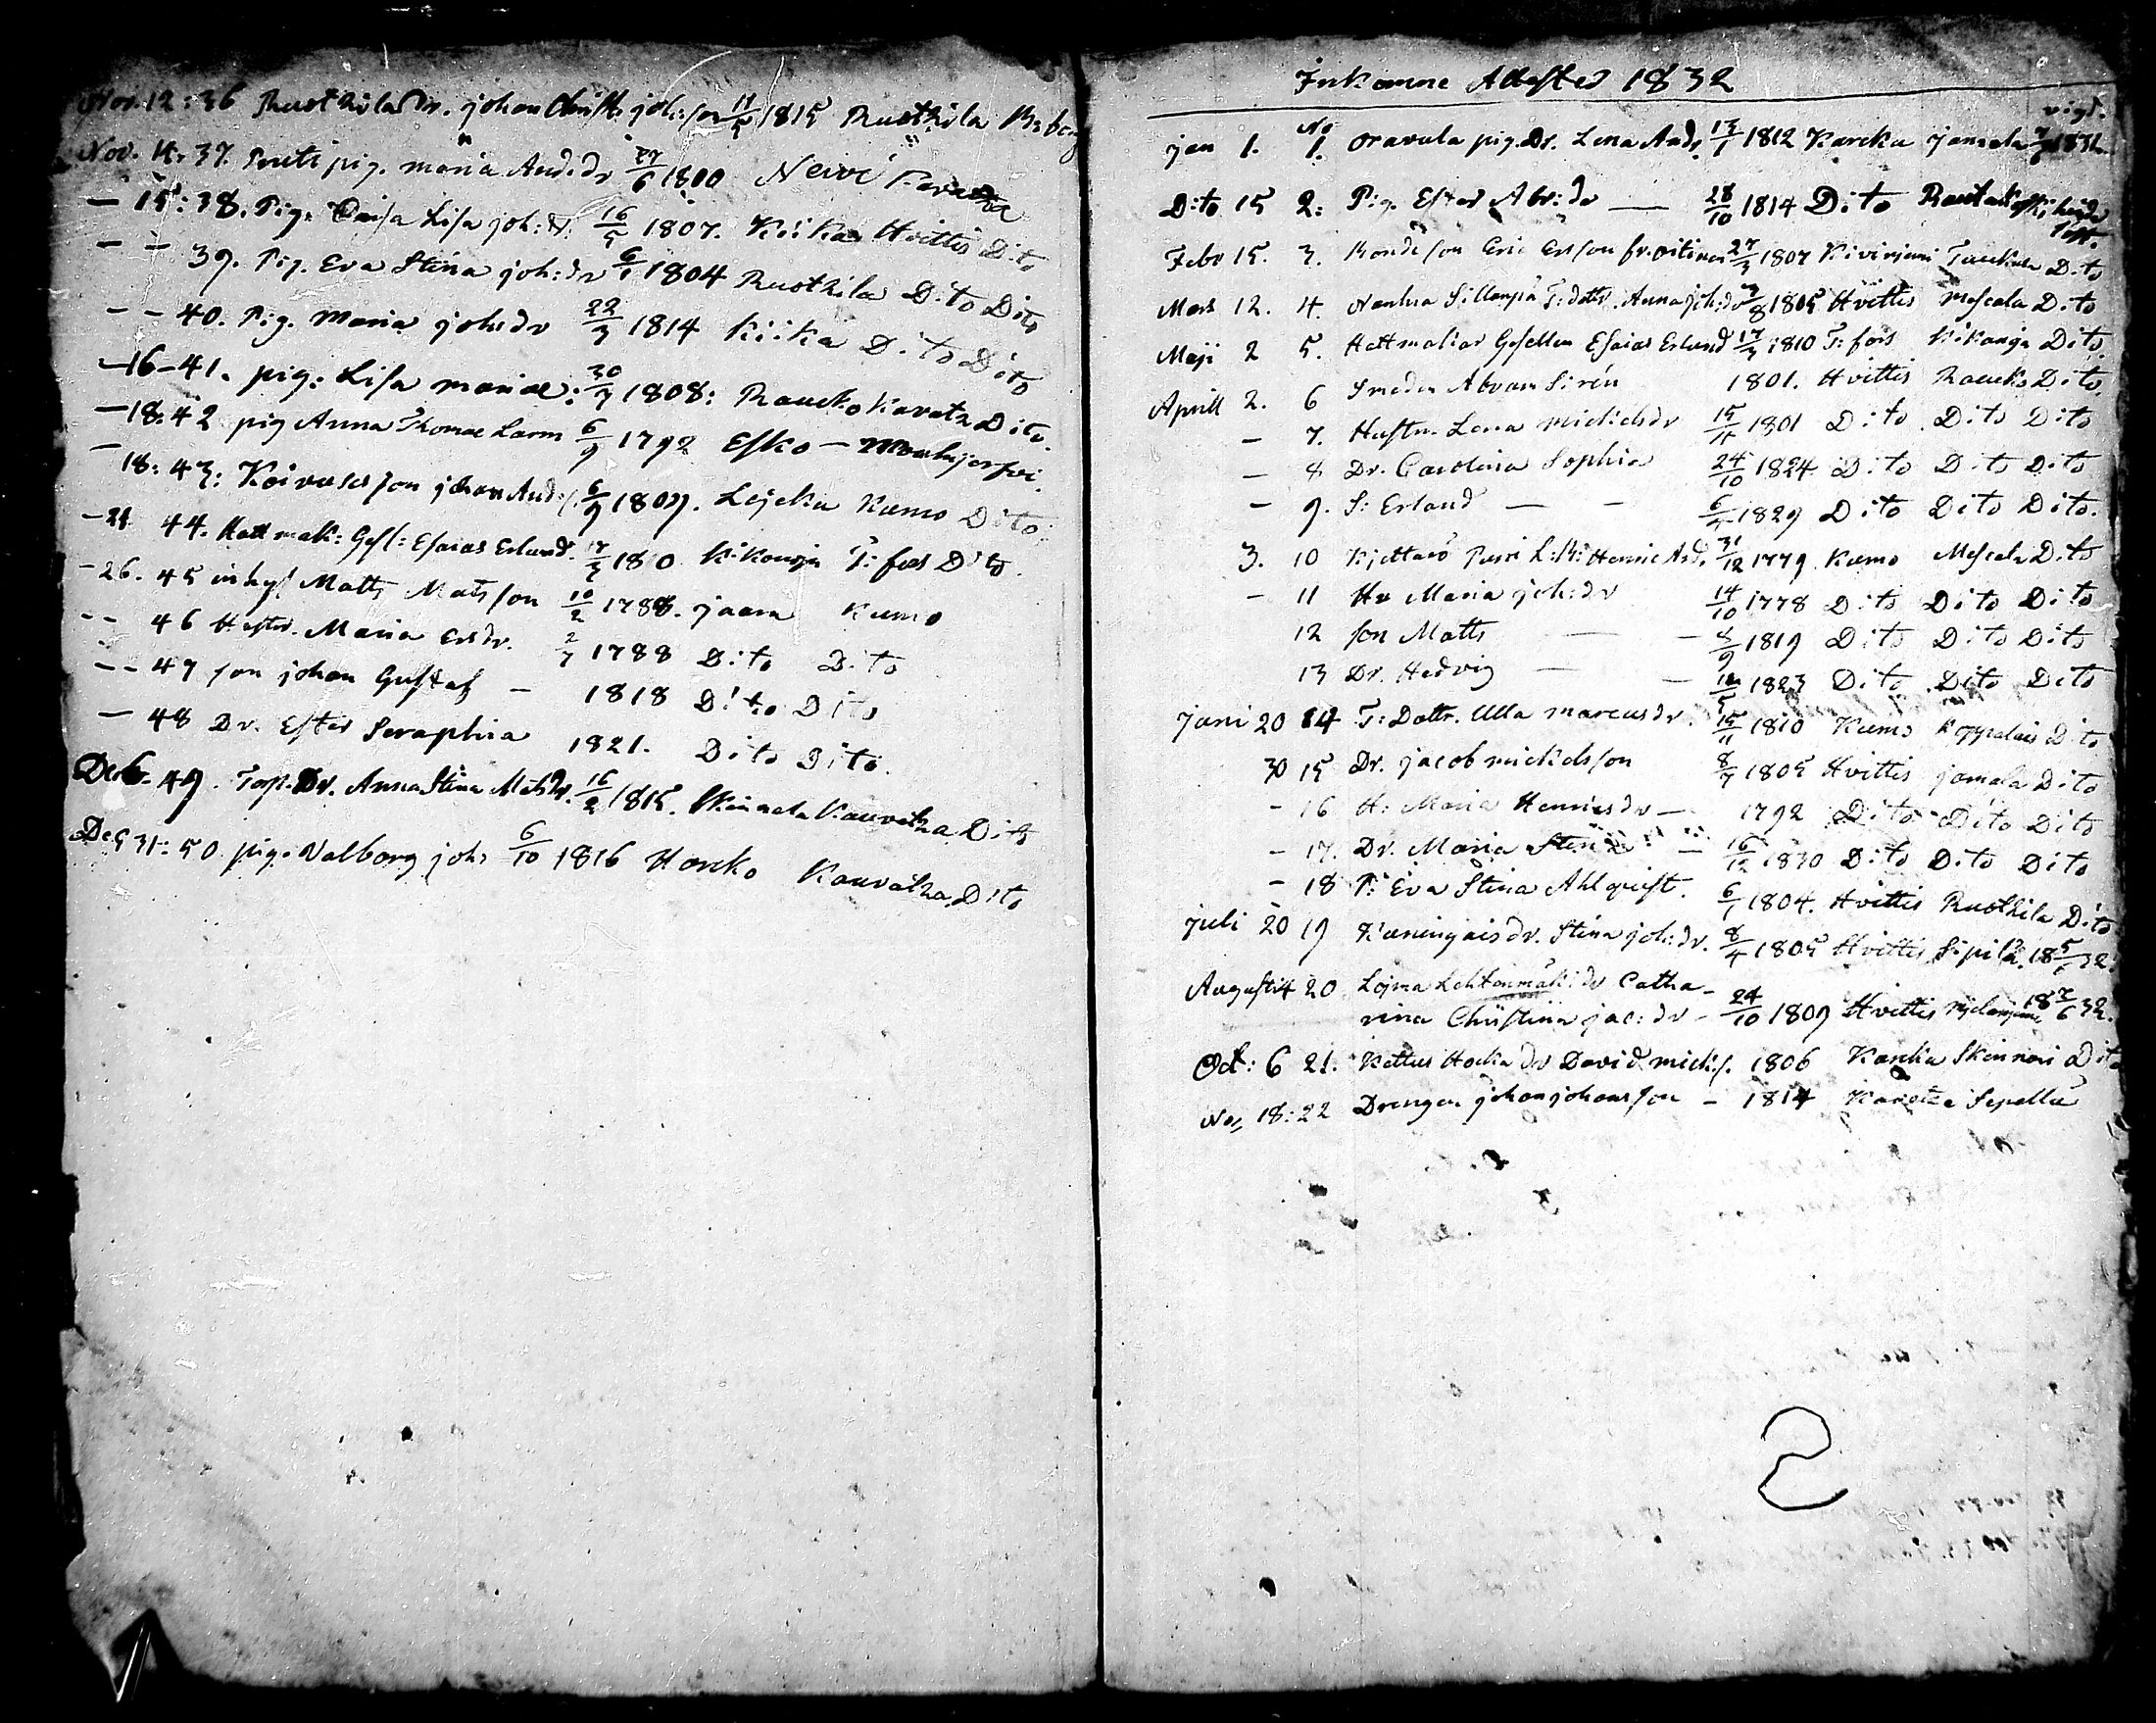 Nov. 12: 36 Ruothila Dr. johan Christ. joh:son 11/5 1815 Ruothila
Nov. 14. 37. Pentti pig. maria And:dr 27/6 1800
— 15: 38. Pig. Caisa Lisa joh:dr. 16/5 1807. Kiika Hvittis Dito
— — 39. Pig. Eva Stina joh:dr 6/1 1804 Ruothila Dito Dito
— — 40. Pig. Maria johsdr 22/3 1814 Kiika Dito Dito
—16—41. pig. Lisa mariae: 30/3 1808: Raucko Kavatz Dito
—18. 42 pig Anna Thomae Larm 6/9 1792 Esko —
— 18: 43: Koivuses son johan And: 6/9 1809. Lejeku Kumo Dito
—21 44. Hattmak: Gesl: Esaias Erlund. 17/3 1810 Kikonja T: fors Dito
—26. 45 inhys Matts Mats son 10/2 1788. jaara Kumo
— — 46 Hustr. Maria Ersdr. 2/7 1788 Dito Dito
— — 47 son johan Gustaf — 1818 Dito Dito
— 48 Dr. Ester Seraphia 1821. Dito Dito.
Dec 6. 49. Torp. Dr. Anna Stina Matsdr. 16/2 1815. Skinnela Kauvatza Dito
Dec 31: 50. pig. Valborg joh: 6/10 1816 Horcko Kauvatza Dito
Inkomne Attester 1832
vigd.
jan 1. No 1. Oravala pig. Dr. Lena And. 13/1 1812 Karcku jamala 1832
Dito 15 2: Pig. Ester Abr:dr — 28/10 1814 Dito
Febr 15. 3. Bonde son Eric Erson fr. 27/3 1807 Kivirjemi Dito
Mars 12. 4. Nanhia Sillanpä T: dottr. Anna joh:dr 3/8 1805 Hvittis Mescala Dito
Maji 2 5. Hattmakar Gesellen Esaias Erlund 17/3 1810 T: fors Kikonja Dito
Aprill 2. 6 Smeden Abram Sirén 1801. Hvittis Raucko Dito.
— 7. Hustrn. Lena Mickelsdr 15/11 1801 Dito Dito Dito
— 8 Dr. Carolina Sophia 24/10 1824 Dito Dito Dito
— 9. S: Erland — — 6/4 1829 Dito Dito Dito.
3. 10 Kjettarö Henric And. 31/12 1779 Kumo Mescala Dito
— 11 Hu Maria joh:dr 14/10 1778 Dito Dito Dito
12 son Matts — — 4/9 1819 Dito Dito Dito
13 Dr. Hedvig — — 1823 Dito Dito Dito
juni 20 14 T: Dottr. Ulla marcusdr. 15/11 1810 Kumo Dito
30 15 Dr. jacob mickelsson 8/7 1805 Hvittis jamala Dito
— 16 H: Maria Henricsdr — 1792 Dito Dito Dito
— 17. Dr. Maria Stina — 16/12 1830 Dito Dito Dito
— 18 P: Eva Stina Ahlqvist. 6/1 1804. Hvittis Ruothila Dito
juli 20 19 Stina joh:dr. 8/4 1805 Hvittis Sipilä. 18 5/ 32.
Augusti 4 20 Lojma Lehtenmäki dr Catha-
rina Christina jac:dr — 24/10 1809 Hvittis 18 7/6 32.
Oct: 6 21. Kettus Hocka dr David mick:s. 1806 Karcku Skinnari Dito
Nov 18: 22 Drengen johan johansson — 1814 Kavatza Sepellä
2